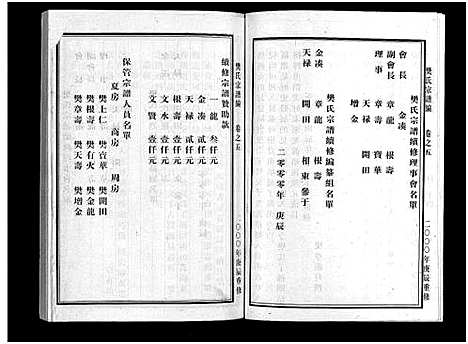 樊氏宗譜編 卷之五
樊氏宗譜續修理事會名單
會長 金湊
副會長 章龍 根壽
理事 章壽 寶華
天祿 開田
增金
樊氏宗譜續修編纂組名單
金湊 章龍 根壽
天祿 開田 相東 參于
二〇〇〇年 庚辰
二〇〇〇年庚辰重修
樊氏宗譜編 卷之五
續修宗譜贊助款
一龍 叁仟元
金湊 貳仟元
天祿 貳仟元
根壽 壹仟元
文水 壹仟元
文賢 壹仟元
保管宗譜人員名單
夏房 高房 周房
樊上仁 樊寶華 樊開田
樊根壽 樊有火 樊金龍
樊章壽 樊天壽 樊增金
二〇〇〇年庚辰重修